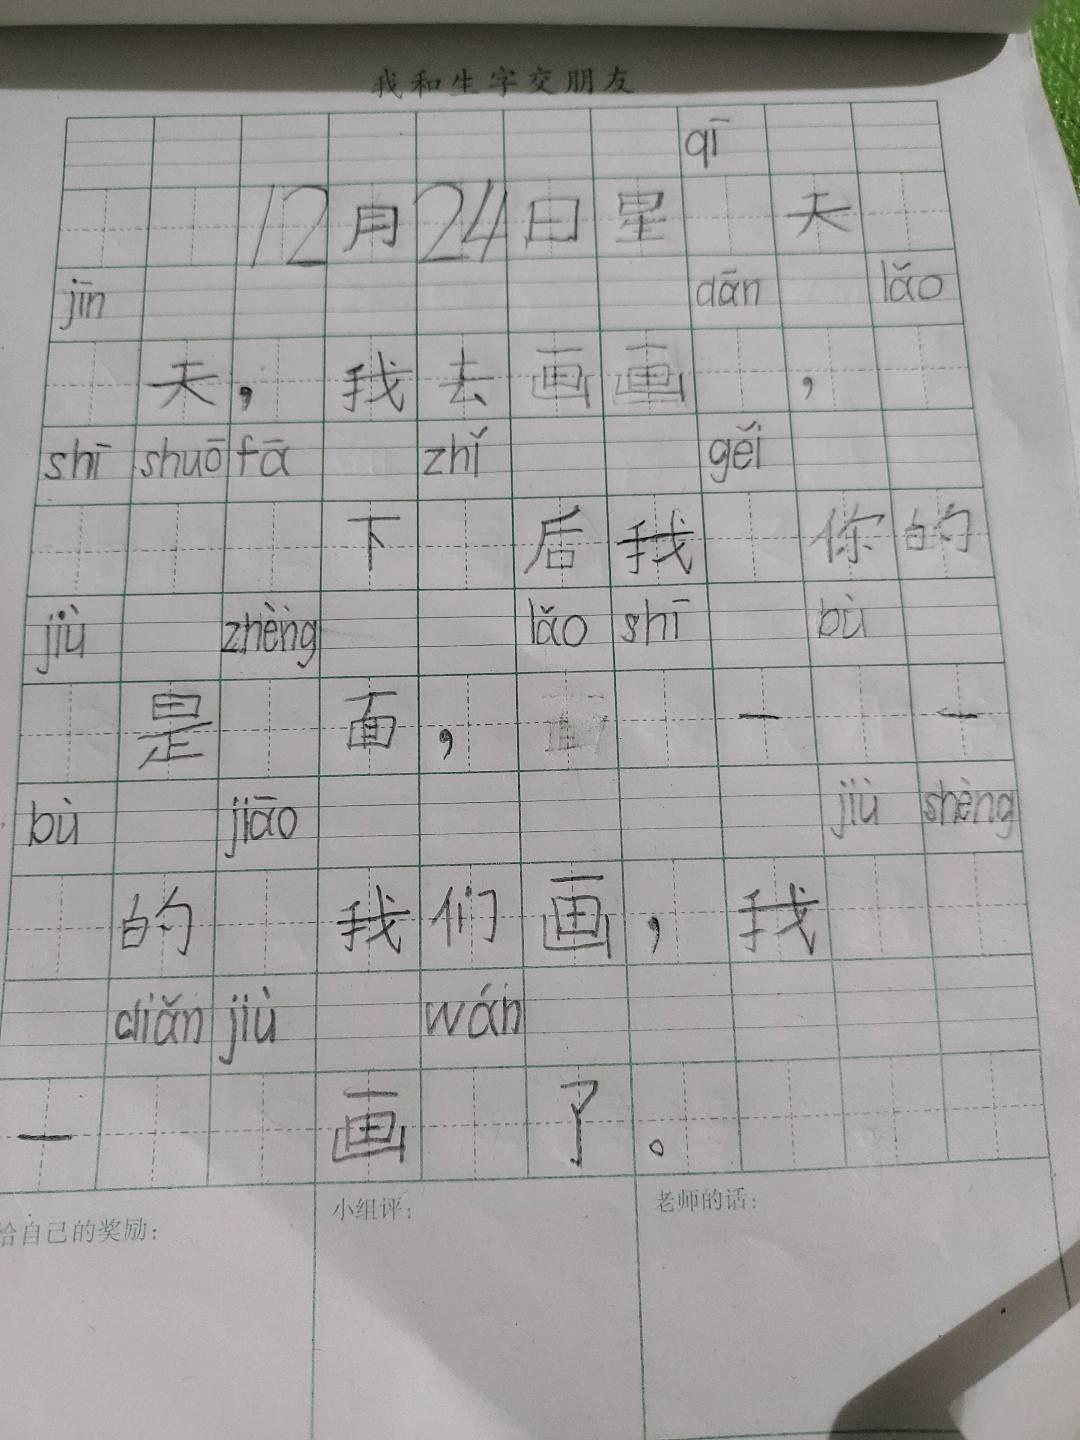 我和生字交朋友
qī
12月24日星 天
jīn dān lǎo
天，我去画画 ，
shī shuō fā zhǐ gěi
下 后我 你的
jiù zhèng lǎo shī bù
是 面， 画 一 一
bù jiāo jiù shèng
的 我们画，我
diǎn jiù wán
一 画 了。
给自己的奖励：
小组评：
老师的话：